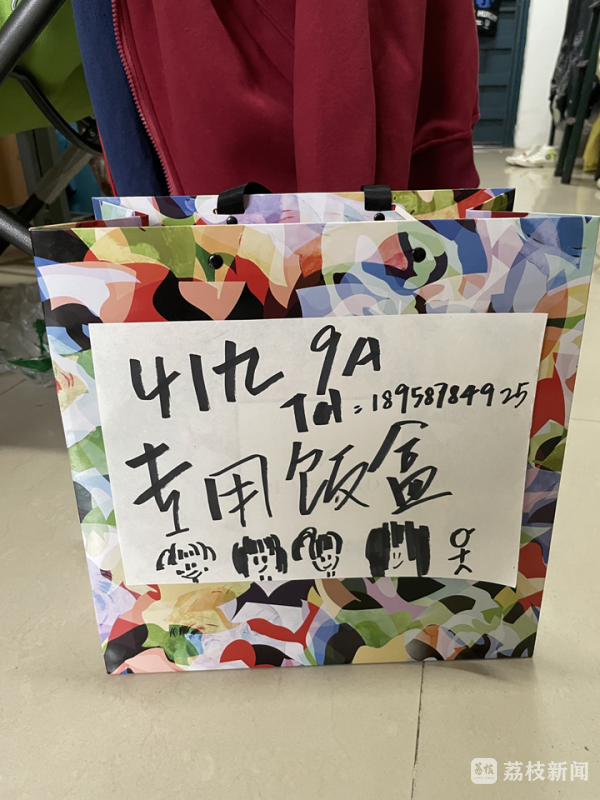 419 9A
Tel:18958784925
专用饭盒
荔枝新闻